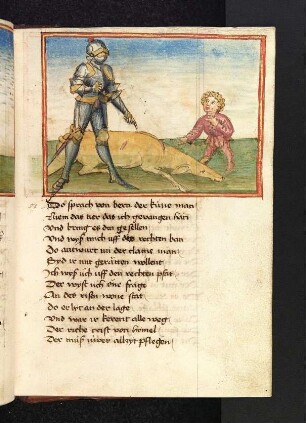 Do sprach von bern der küne man
Niem das tier das ich gevangen han
Und bring es din gesellen
Und wyß mich uff den rechten ban
Do antwurt im der claine man
Syd ir mir geräten wollent
Ich wyß üch uff den rechten pfat
Der wyßt üch one frage
An des risen wone stat
do er lyt an der lage
Und war ir kerent alle weg
Der riche crist von himel
Der müß üwer allzyt pflegen